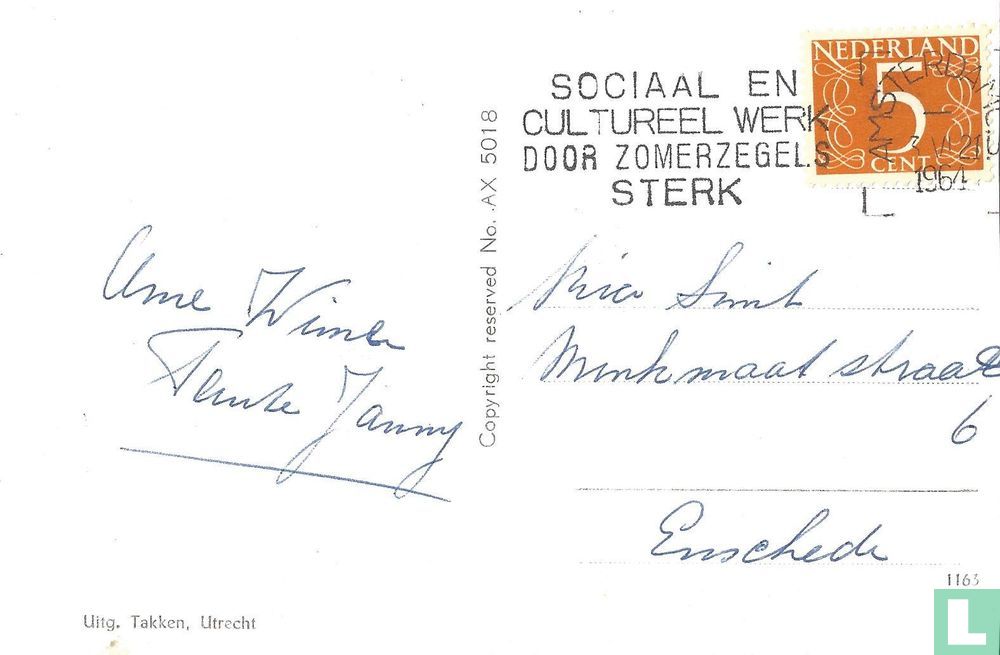 NEDERLAND
5
CENT
SOCIAAL EN
CULTUREEL WERK
DOOR ZOMERZEGELS
STERK
AMSTERDAM
1964
Copyright reserved No. AX 5018
Janny
Smit
straat
6
Enschede
1163
Uitg. Takken, Utrecht
L